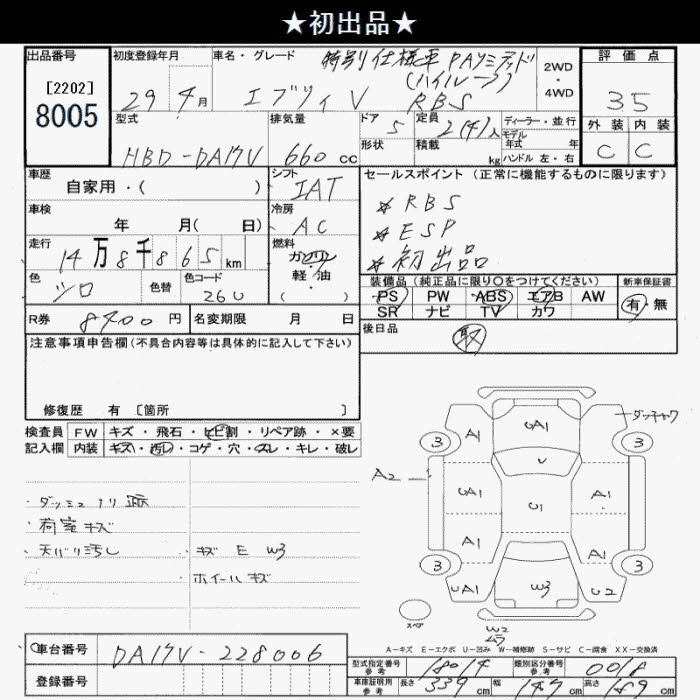 ★初出品★
出品番号 初度登録年月 車名・グレード 特別仕様車 PAリミテッド 評価点
[2202] (ハイルーフ) 2WD
8005 29 年 4月 エブリィV RBS ・4WD 35
型式 排気量 ドア 定員 ディーラー・並行 外装 内装
HBD-DA17V 660cc 5 2(4)人 モデル年式 年 C C
形状 積載 kg ハンドル 左・右
車歴 シフト セールスポイント(正常に機能するものに限ります)
自家用・( ) IAT ※RBS
車検 冷房 ※ESP
年 月( 日) AC ※初出品
走行 燃料
14万8千865km ガソリン
軽・油
( )
色 色替 色コード 装備品(純正品に限り○をつけてください) 新車保証書
シロ 26U PS PW ABS エアB AW 有・無
SR ナビ TV カワ
R券 8400円 名変期限 月 日 後日品 取
注意事項申告欄(不具合内容等は具体的に記入して下さい)
修復歴 有 [箇所 ]
検査員 FW キズ・飛石・ヒビ割・リペア跡・×要
記入欄 内装 キズ・汚レ・コゲ・穴・スレ・キレ・破レ
・荷室キズ
・天バリ汚し ・キズ E W3
・ホイールキズ
A1 UA1 3 3
A2 UA1 U U1 A1
A1 A1
3 3
UA1 W3 U2
スペア W2
ムラ
A-キズ E-エクボ U-凹み W-補修跡 S-サビ C-腐食 XX-交換済
車台番号 DA17V-228006
登録番号
型式指定番号 参考 18014 類別区分番号 参考 0018
車庫証明用 参考 長さ 339cm 幅 147cm 高さ 189cm